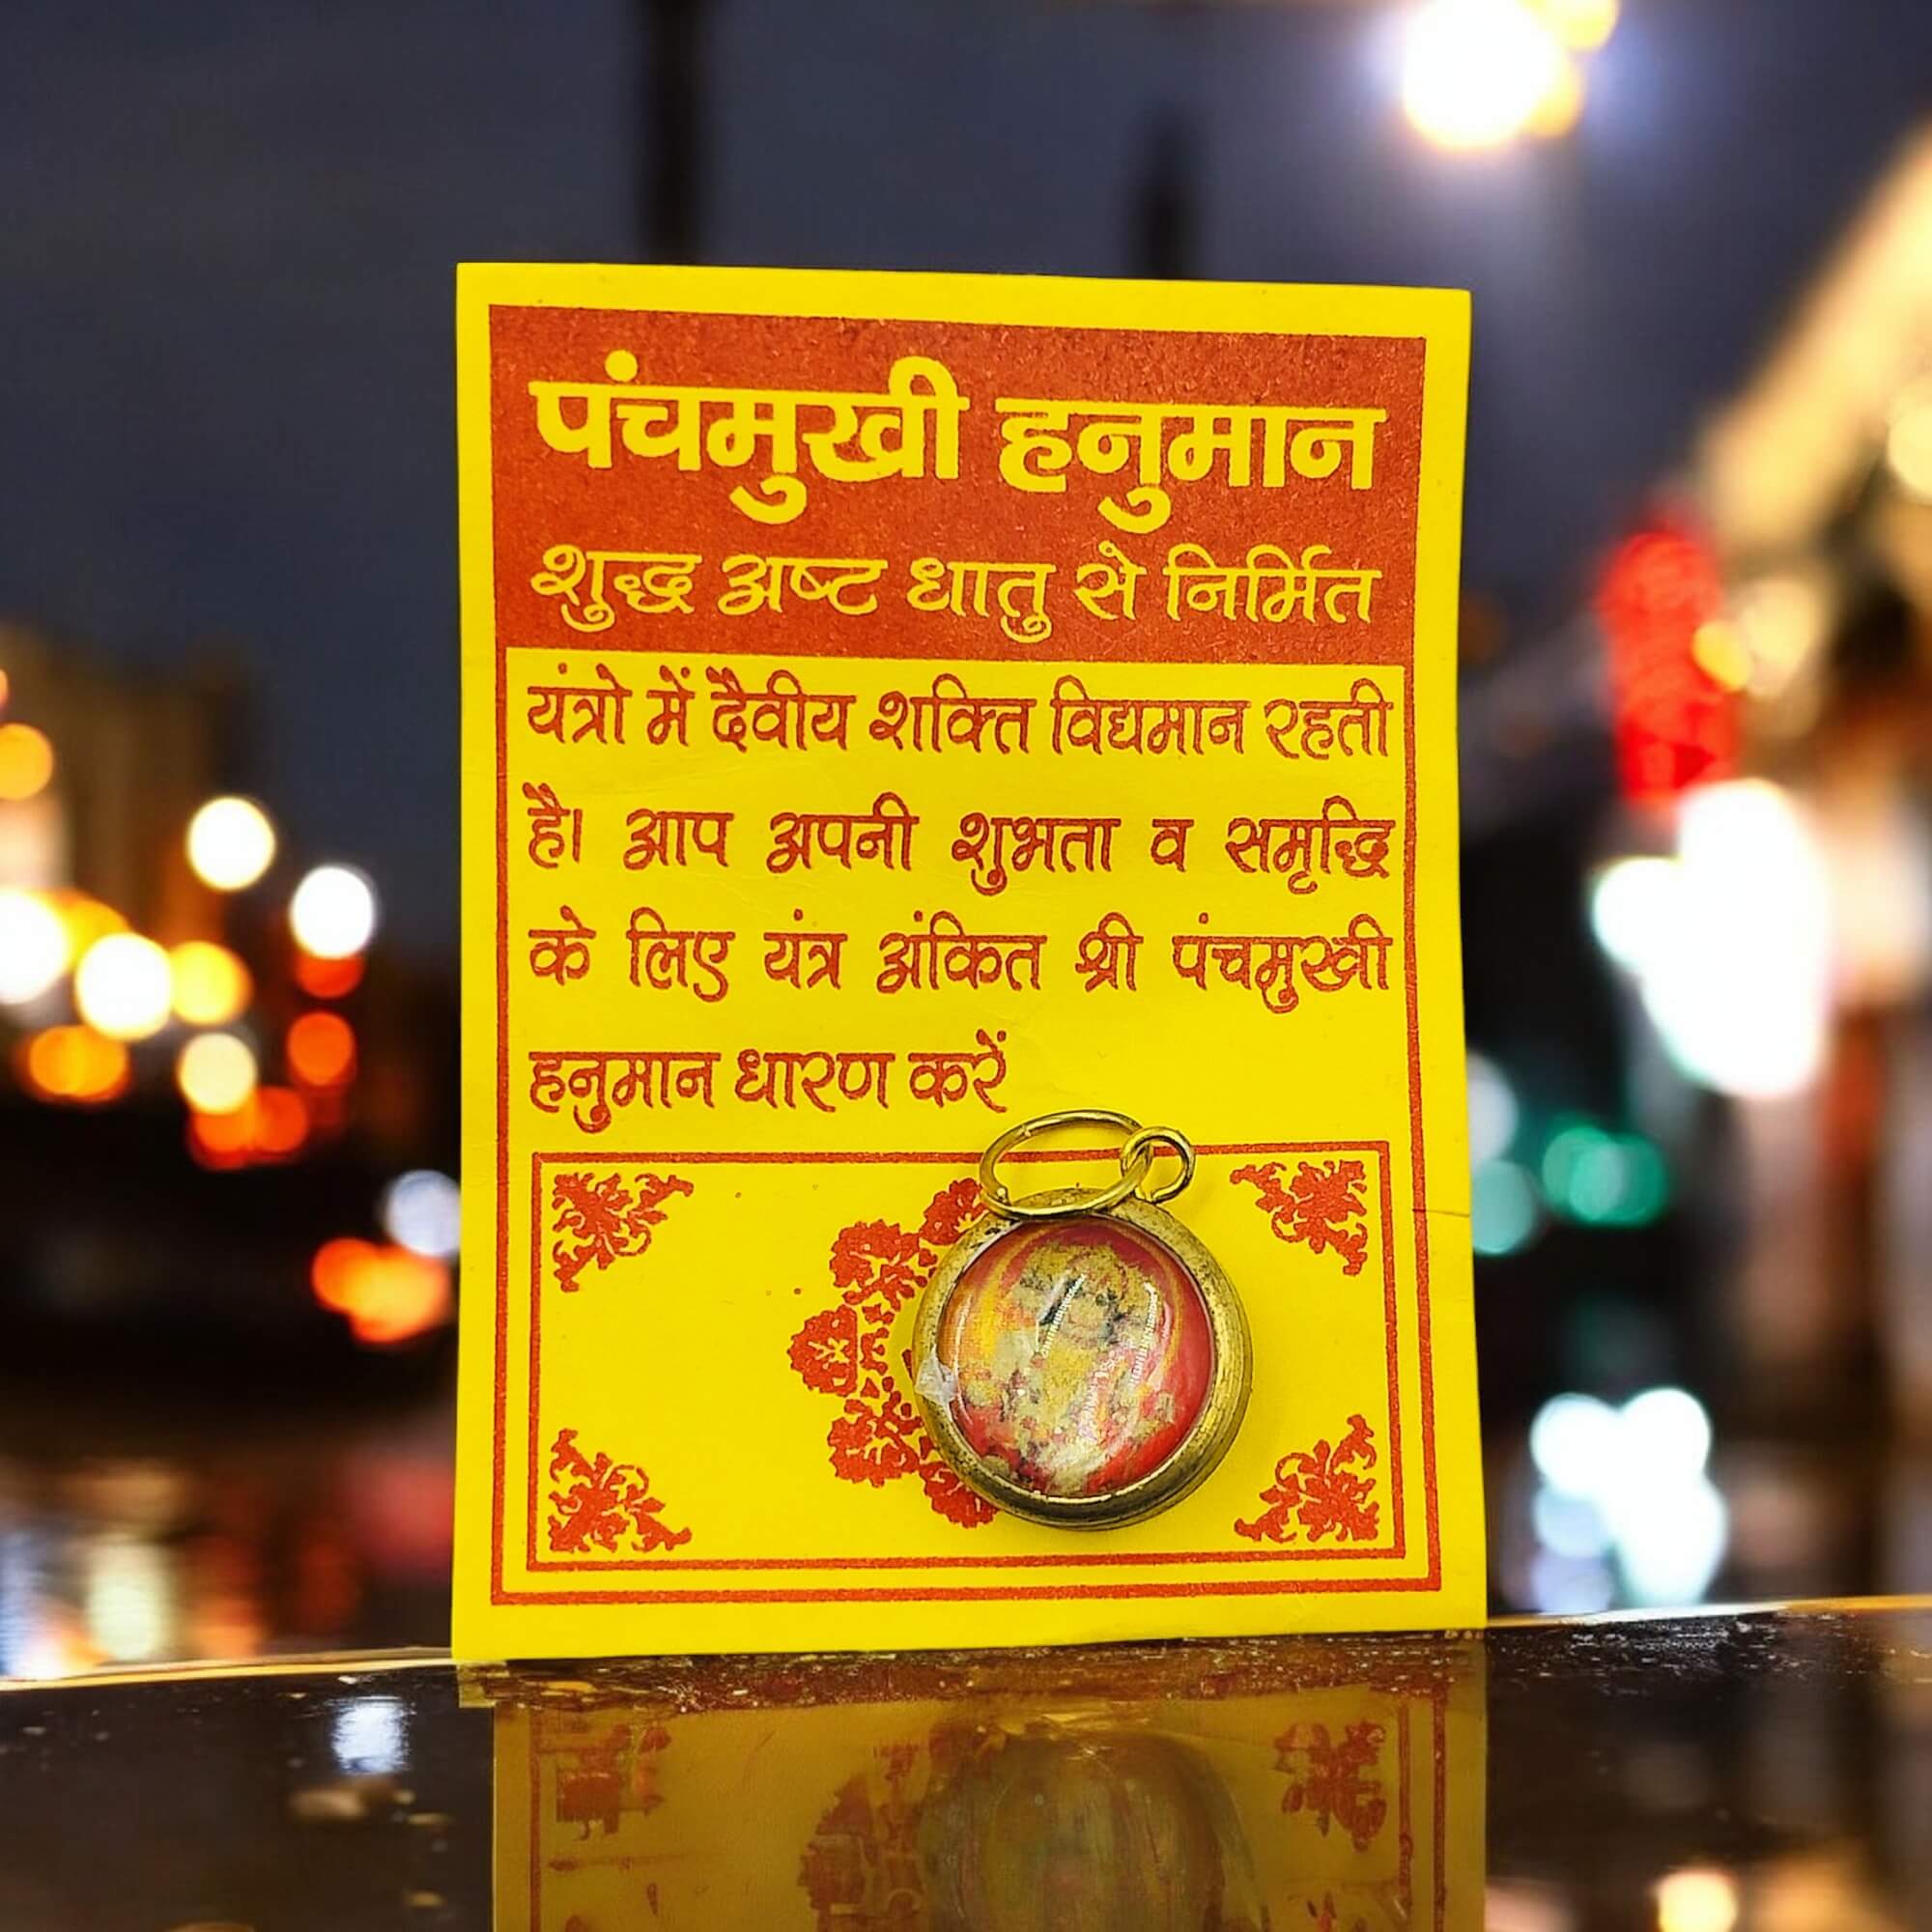 पंचमुखी हनुमान
शुद्ध अष्ट धातु से निर्मित
यंत्रो में दैवीय शक्ति विद्यमान रहती
है। आप अपनी शुभता व समृद्धि
के लिए यंत्र अंकित श्री पंचमुखी
हनुमान धारण करें